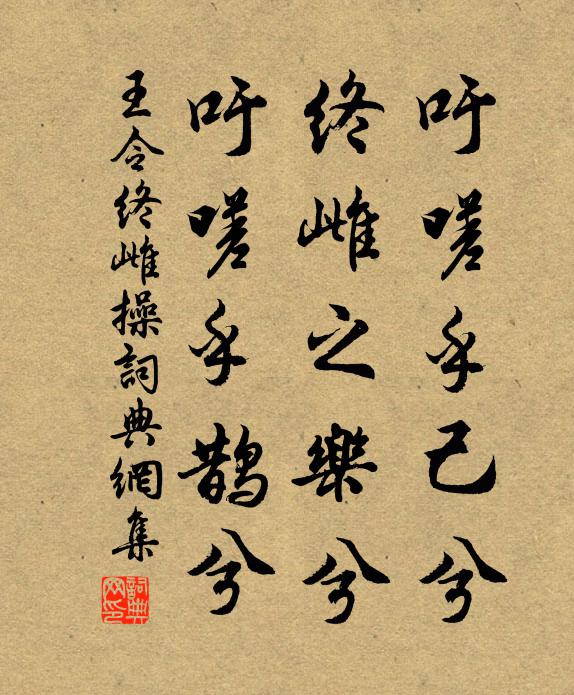 吁嗟乎已兮
终雌之樂兮
吁嗟乎鹊兮
王令终雌操詞典網集
詞典网印